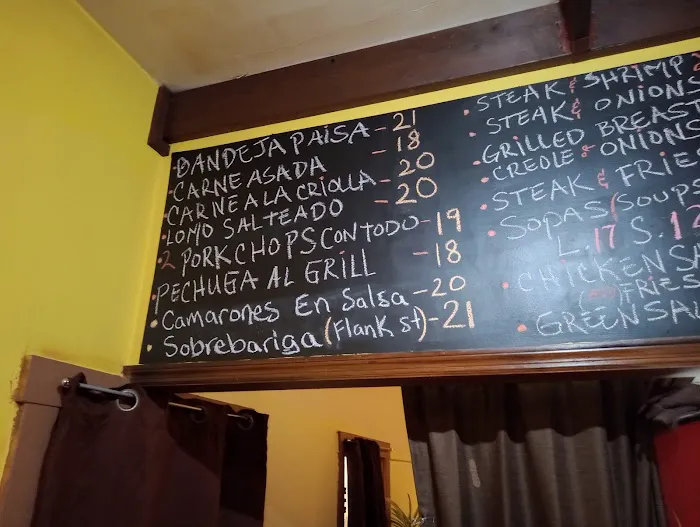 BANDEJA PAISA - 21
CARNE ASADA - 18
CARNE A LA CRIOLLA - 20
LOMO SALTEADO - 20
2 PORK CHOPS CON TODO - 19
PECHUGA AL GRILL - 18
Camarones En Salsa - 20
Sobrebariga (Flank st) - 21
STEAK & SHRIMP
STEAK & ONIONS
GRILLED BREAST
CREOLE & ONIONS
STEAK & FRIE
SOPAS/SOUP
L. 17 S. 12
CHICKEN
FRIES
GREEN SA